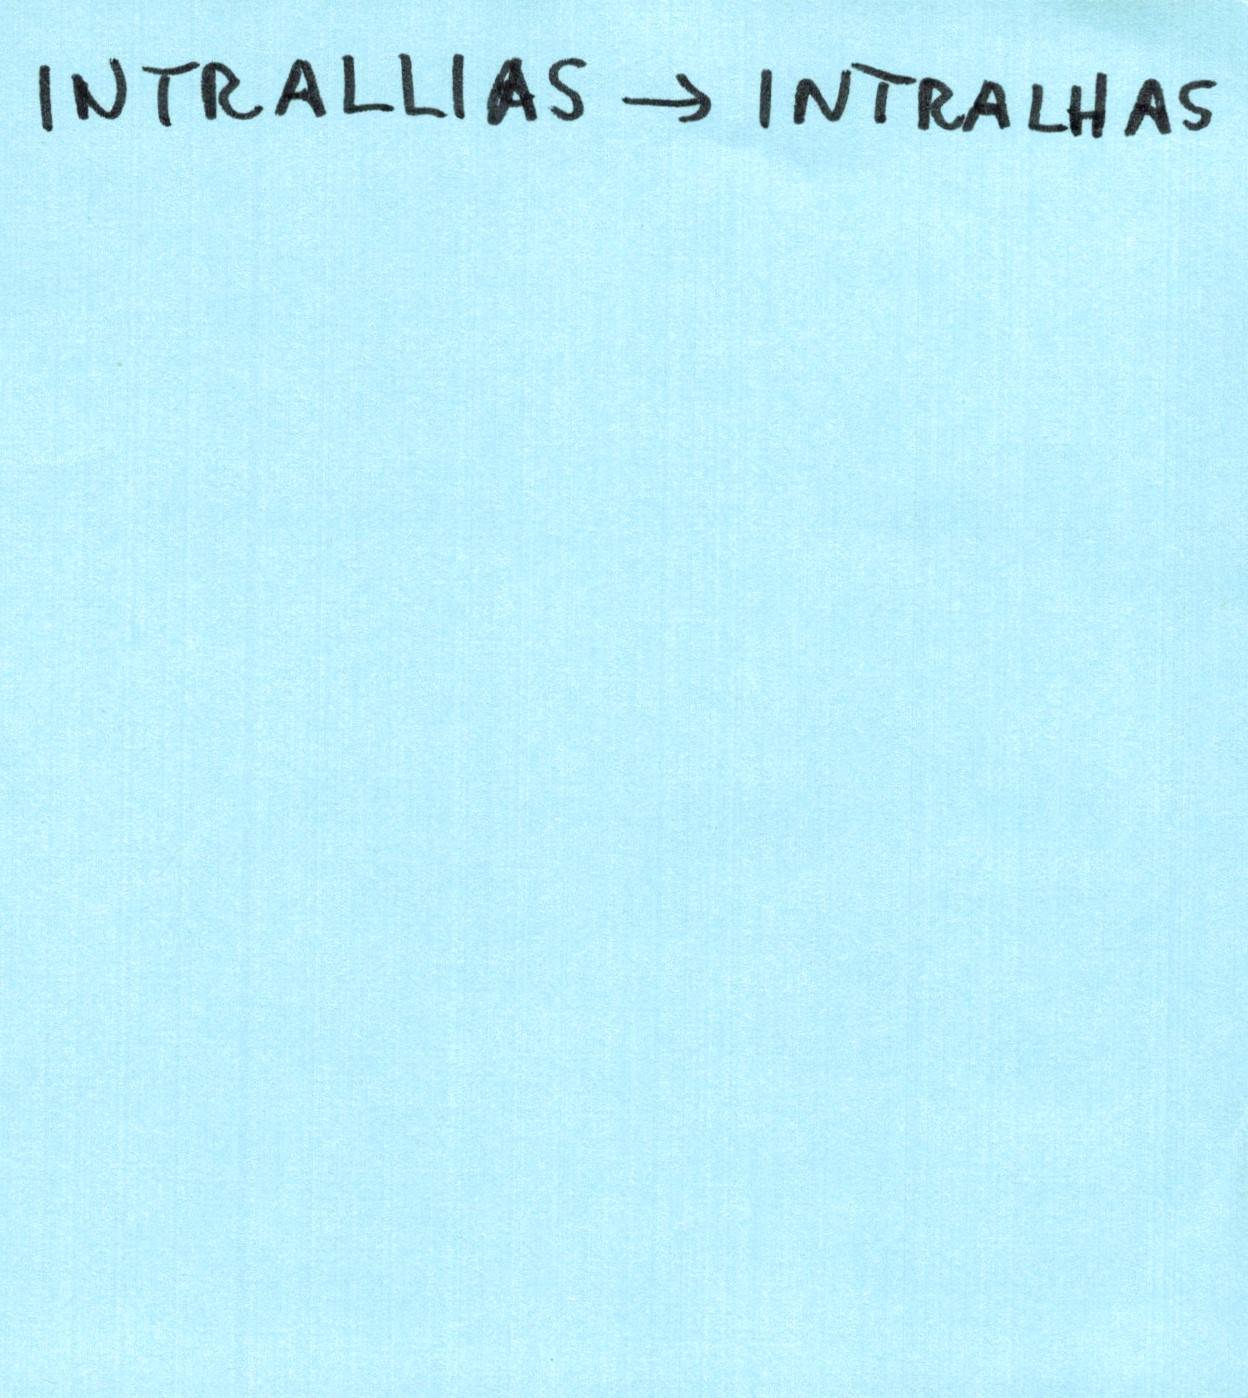 INTRALLIAS → INTRALHAS